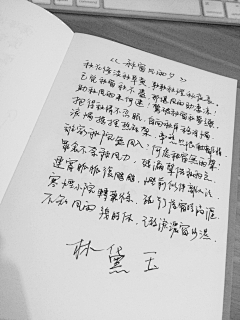 《秋窗风雨夕》
秋花惨淡秋草黄,耿耿秋灯秋夜长。
已觉秋窗秋不尽,那堪风雨助凄凉!
助秋风雨来何速!惊破秋窗秋梦绿。
抱得秋情不忍眠,自向秋屏移泪烛。
泪烛摇摇爇短檠,牵愁照恨动离情。
谁家秋院无风入?何处秋窗无雨声?
罗衾不奈秋风力,残漏声催秋雨急。
连宵脉脉复飕飕,灯前似伴离人泣。
寒烟小院转萧条,疏竹虚窗时滴沥。
不知风雨几时休,已教泪洒窗纱湿。
林黛玉